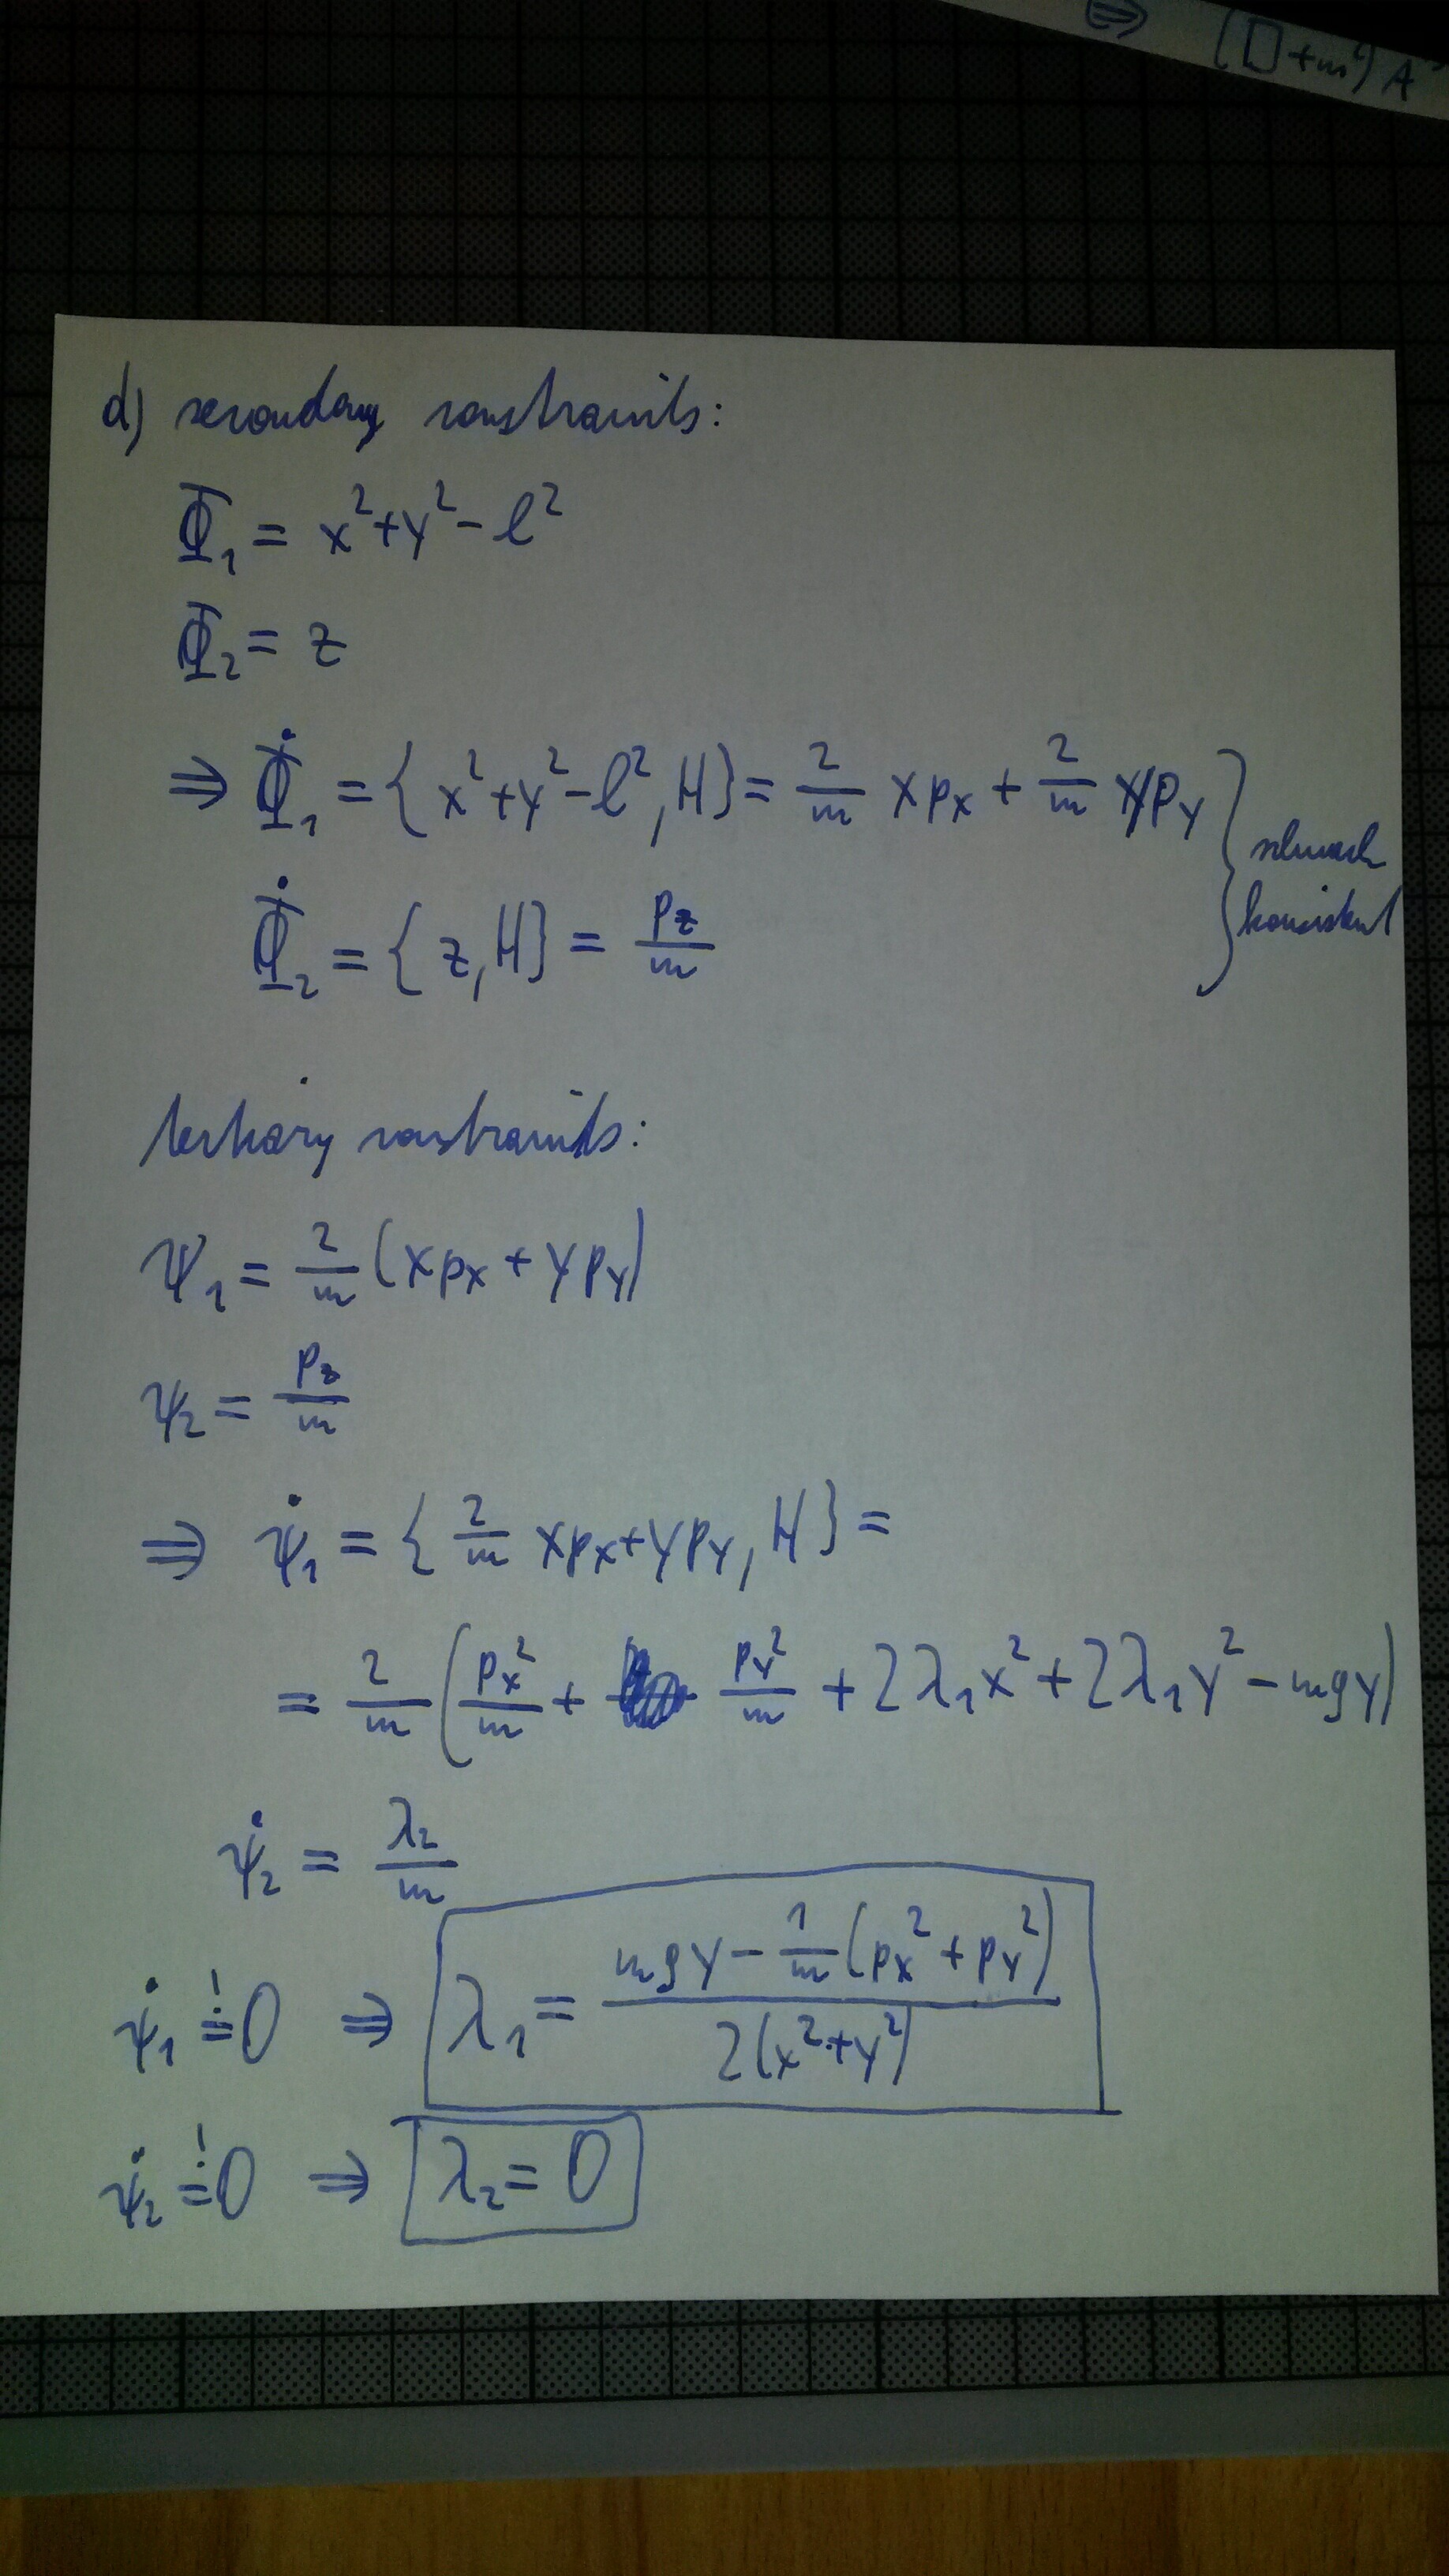 ⇒ (□+m²) A
d) secondary constraints:
Φ₁ = x²+y²-l²
Φ₂ = z
⇒ Φ̇₁ = {x²+y²-l², H} = 2/m x pₓ + 2/m y p_y } schwach konsistent
Φ̇₂ = {z, H} = p_z/m
tertiary constraints:
ψ₁ = 2/m (x pₓ + y p_y)
ψ₂ = p_z/m
⇒ ψ̇₁ = {2/m x pₓ + y p_y, H} =
= 2/m (pₓ²/m + p_y²/m + 2λ₁x² + 2λ₁y² - mgy)
ψ̇₂ = λ₂/m
ψ̇₁ != 0 ⇒ λ₁ = (mgy - 1/m (pₓ² + p_y²)) / (2(x²+y²))
ψ̇₂ != 0 ⇒ λ₂ = 0